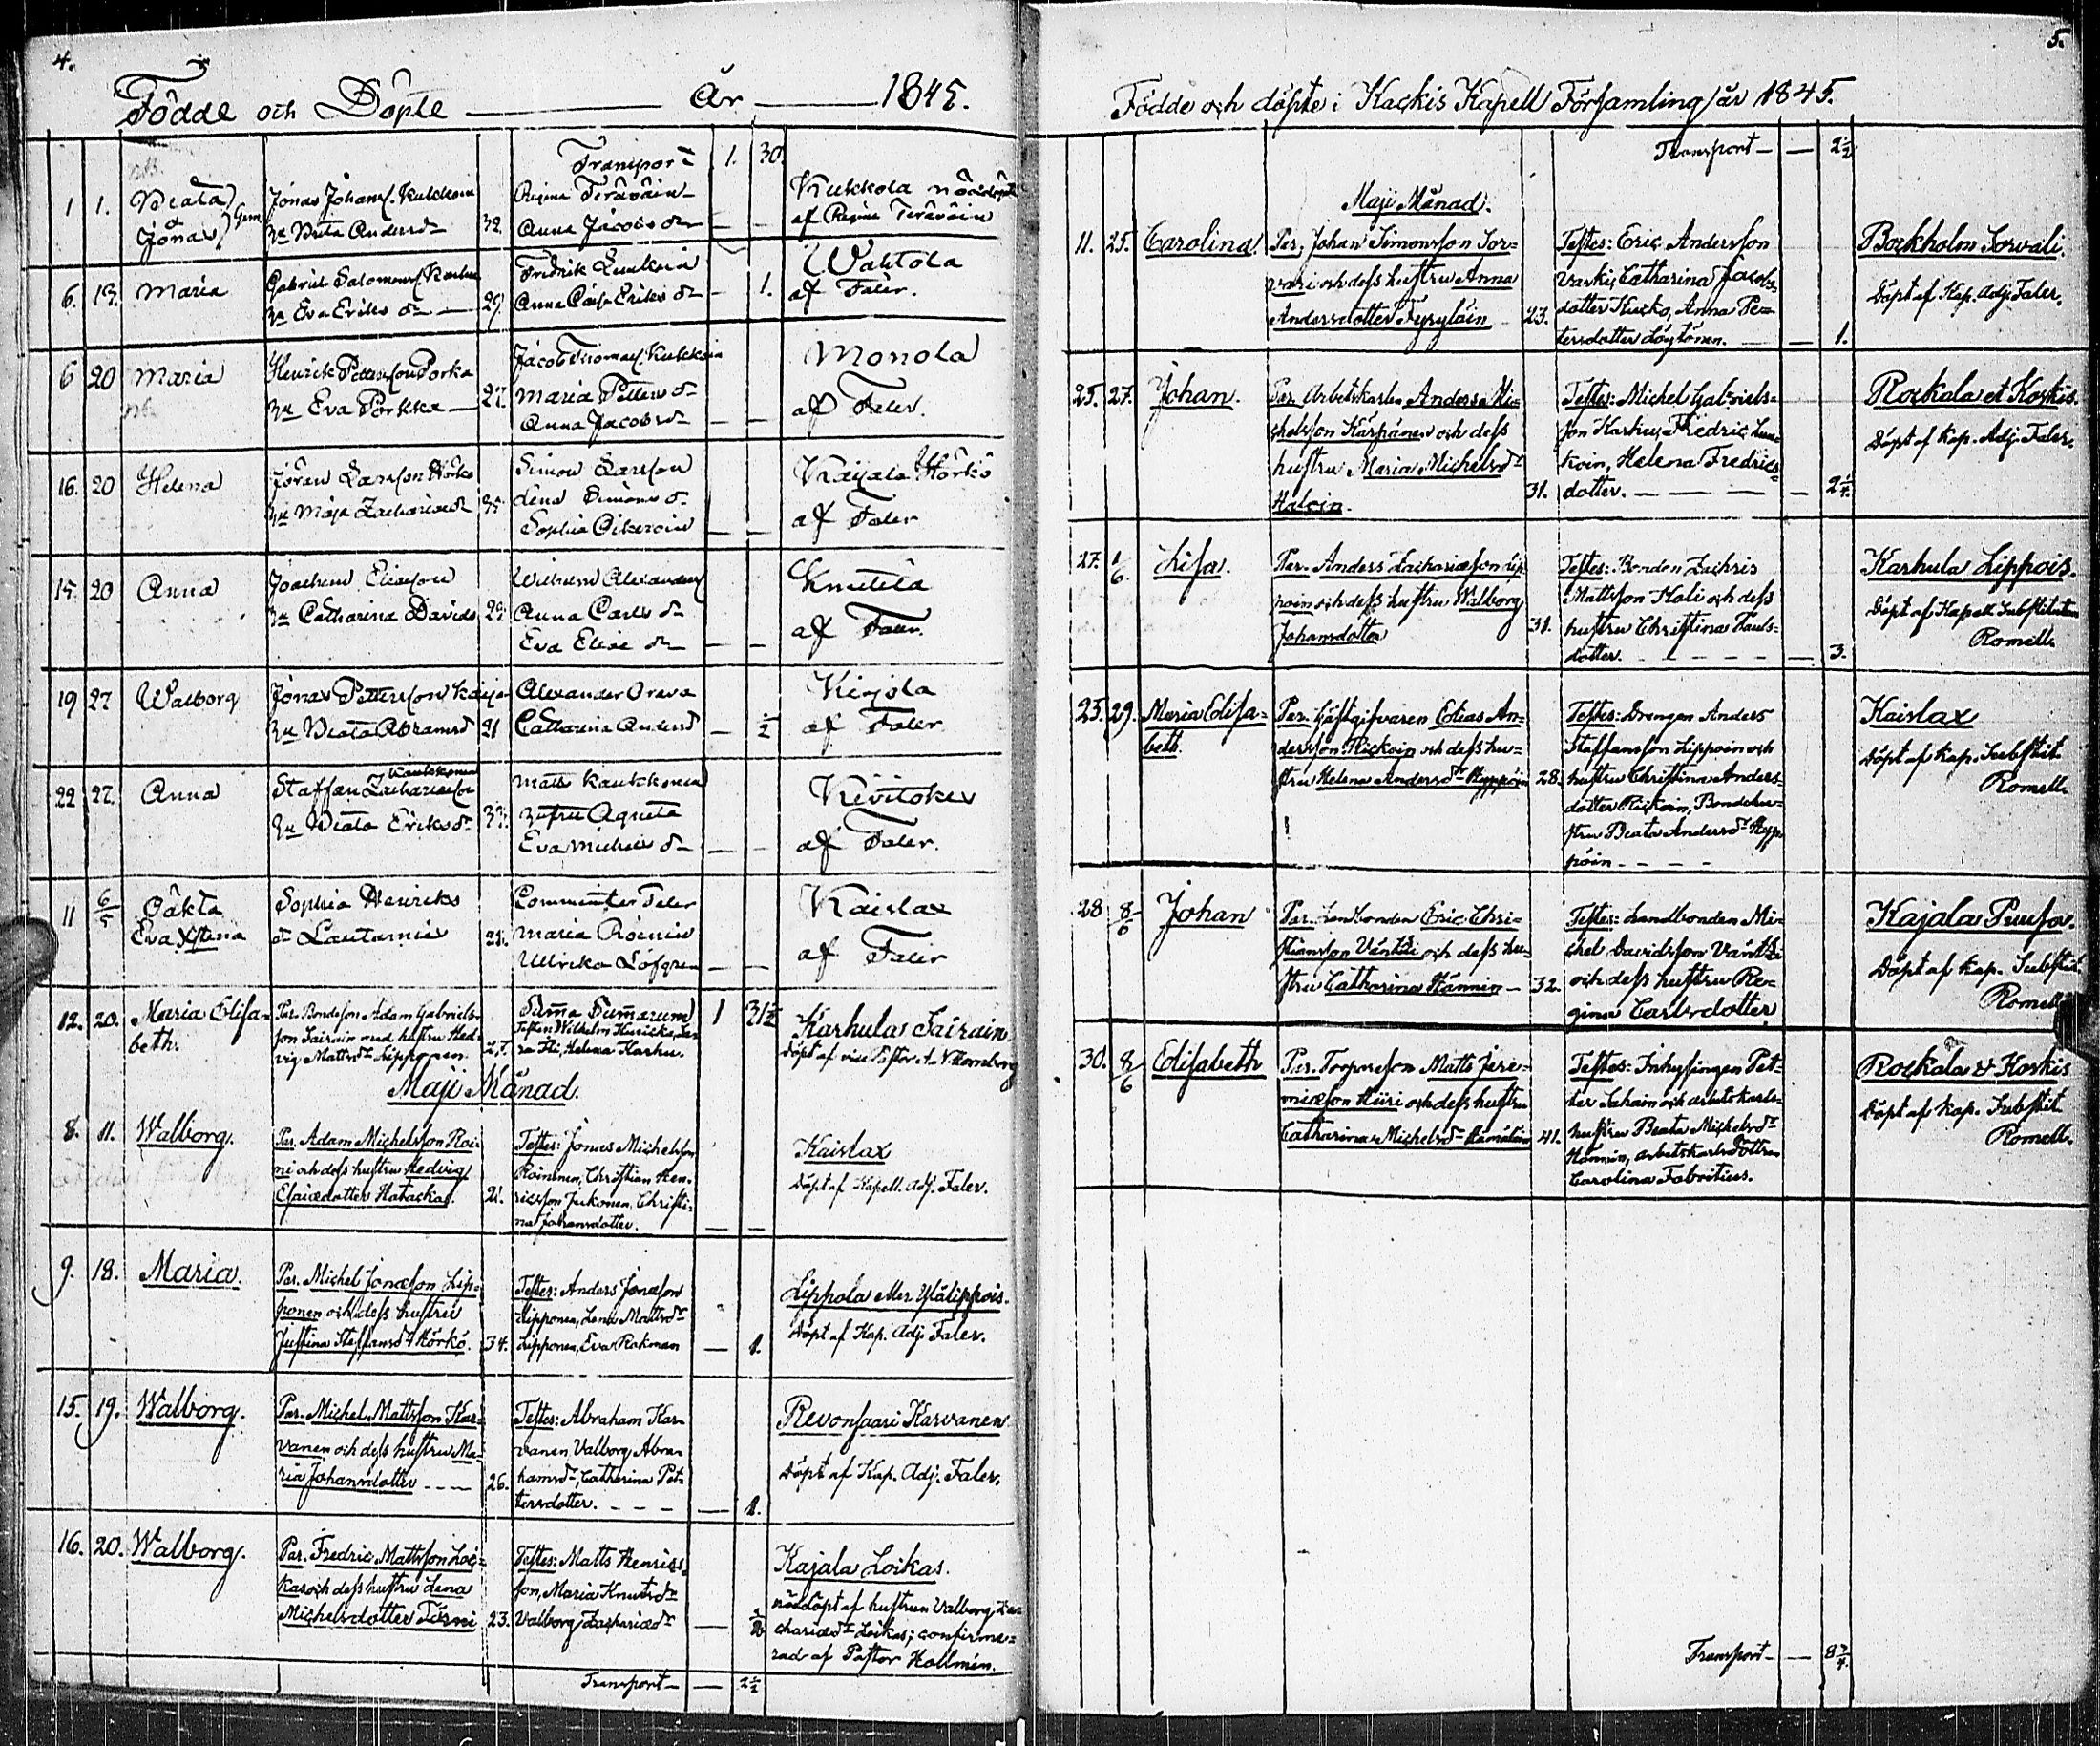 4.
Födde och Döpte År 1845.
Transport 1. 30.
1 1. Beata & Jonas Gem
Jonas Johans. Kukkoin
hu Beata Anders dr 32.
Regina Teräväin
Anna Jacobs dr
Kukkola nöddöpt
af Regina Teräväin
6. 13. Maria
Gabriel Salomons.
hu Eva Eriks dr 29.
Fredrik Luukoin
Anna Caisa Eriks dr 1.
Wahtola
af Faler.
6 20 Maria
Henrik Petersson Porka
hu Eva Porkka 27.
Jacob Thomas. Kukkoin
Maria Petters dr
Anna Jacobsdr
Monola
af Faler.
16. 20 Helena
Jöran Larsson Hörkö
hu Maja Zachariædr 35.
Simon Larsson
Lena Simons dr
Sophia Oikeroin
Kaijala Hörkö
af Faler
15. 20 Anna
Joachim Eliasson
hu Catharina Davids 29.
Wilhelm Alexanders
Anna Carls dr
Eva Eliæ dr
Knuttila
af Faler.
19 27 Walborg
Jonas Pettersson Kaija
hu Beata Abramsd 21
Alexander Orava
Catharina Andersd ½
Kirjola
af Faler
22 27. Anna
Kaukkonen
Staffan Zachariasson
hu Beata Eriks dr 37.
Matts Kaukkonen
hustru Agneta
Eva Michels dr
Kivitoker
af Faler.
11 6/5 Oäkta
Eva Xstina
Sophia Henriks
dr Lautamies 28.
Comminister Faler
Maria Roinin
Ulrika Löfgren
Kaislax
af Faler
Suma Sumarum 1 31½
12. 20. Maria Elisabeth.
Par. Bondeson Adam Gabriels-
son Sairain med hustru Hed-
vig Mattsdr Lipponen. 27.
Testes Wilhelm Kuricka, Le-
na Hu, Helena Karhu.
Karhula Sairain.
Döpt af vice Pastor A. V. Hornborg
Maji Månad.
8. 11. Walborg.
Par. Adam Michelsson Roi-
ni och dess hustru Hedvig
Esaiædotter Hatacka. 21.
Testes: Jonas Michelsson
Roininen, Christian Hen-
ricsson Jukonen, Christi-
na Johansdotter.
Kaislax
Döpt af Kapell. Adj. Faler.
9. 18. Maria.
Par. Michel Jonæson Lip-
ponen och dess hustru
Justina Staffansdr Hörkö. 34.
Testes: Anders Jonæson
Lipponen, Lena Mattsdr
Lipponen, Eva Rakman 1.
Lippola eller Ylälippois.
Döpt af Kap. Adj. Faler.
15. 19. Walborg.
Par. Michel Mattsson Kar-
vanen och dess hustru Ma-
ria Johansdotter 26.
Testes: Abraham Kar-
vanen, Valborg Abra-
hamsdr, Catharina Pet-
tersdotter. 1.
Revonsaari Karvanen
Döpt af Kap. Adj. Faler.
16. 20. Walborg.
Par. Fredric Mattsson Loi-
kas och dess hustru Lena
Michelsdotter Törni 23.
Testes: Matts Henrics-
son, Maria Knutsdr
Valborg Zachariædr ½
Kajala Loikas.
nöddöpt af hustrun Valborg Za-
chariædr Loikas; confirme-
rad af Pastor Hallmén.
Transport 2½
5.
Födde och döpte i Kackis Kapell Församling år 1845.
Transport 2½
Maji Månad.
11. 25. Carolina.
Par. Johan Simonsson Sor-
vari och dess hustru Anna
Andersdotter Tyryläin 23.
Testes: Eric Andersson
Varki, Catharina Jacobs-
dotter Kucko, Anna Pe-
tersdotter Löytönen. 1.
Bockholm Sorvali.
Döpt af Kap. Adj. Faler.
25. 27. Johan.
Par. Arbetskarlen Anders Mi-
chelsson Kärpänen och dess
hustru Maria Michelsdr
Haloin. 31.
Testes: Michel Gabriels-
son Karhu, Fredric Luu-
koin, Helena Fredrics-
dotter. 2¼.
Rockala et Koskis.
Döpt af Kap. Adj. Faler.
27. 1/6. Lisa.
Par. Anders Zachariæson Lip-
poin och dess hustru Walborg
Johansdotter 31.
Testes: Bonden Zachris
Mattsson Holi och dess
hustru Christina Pauls-
dotter. 3.
Karhula Lippois.
Döpt af Kapell Substituten
Romell.
25. 29. Maria Elisa-
beth.
Par. Gästgifvaren Elias An-
dersson Rickoin och dess hu-
stru Helena Andersdr Hyppöin 28.
Testes: Drengen Anders
Staffansson Lippoin och
hustru Christina Anders-
dotter Rickoin, Bondehu-
stru Beata Andersdr Hyp-
pöin
Kaislax
Döpt af Kap. Substit.
Romell.
28 8/6 Johan
Par. Landbonden Eric Chri-
stiansson Väntti och dess hu-
stru Catharina Hännin 32.
Testes: Landbonden Mi-
chel Davidsson Väntti
och dess hustru Re-
gina Carlsdotter
Kajala Puusa.
Döpt af Kap. Substit.
Romell
30. 8/6 Elisabeth
Par. Torpareson Matts Jere-
miæson Hiiri och dess hustru
Catharina Michelsdr Hämäläin 41.
Testes: Inhysingen Pet-
ter Sahain och arbetskarls-
hustru Beata Michelsdr
Hännin, arbetskarlsdottren
Carolina Fabritius.
Rockala & Koskis
Döpt af Kap. Substit.
Romell.
Transport 8¾.